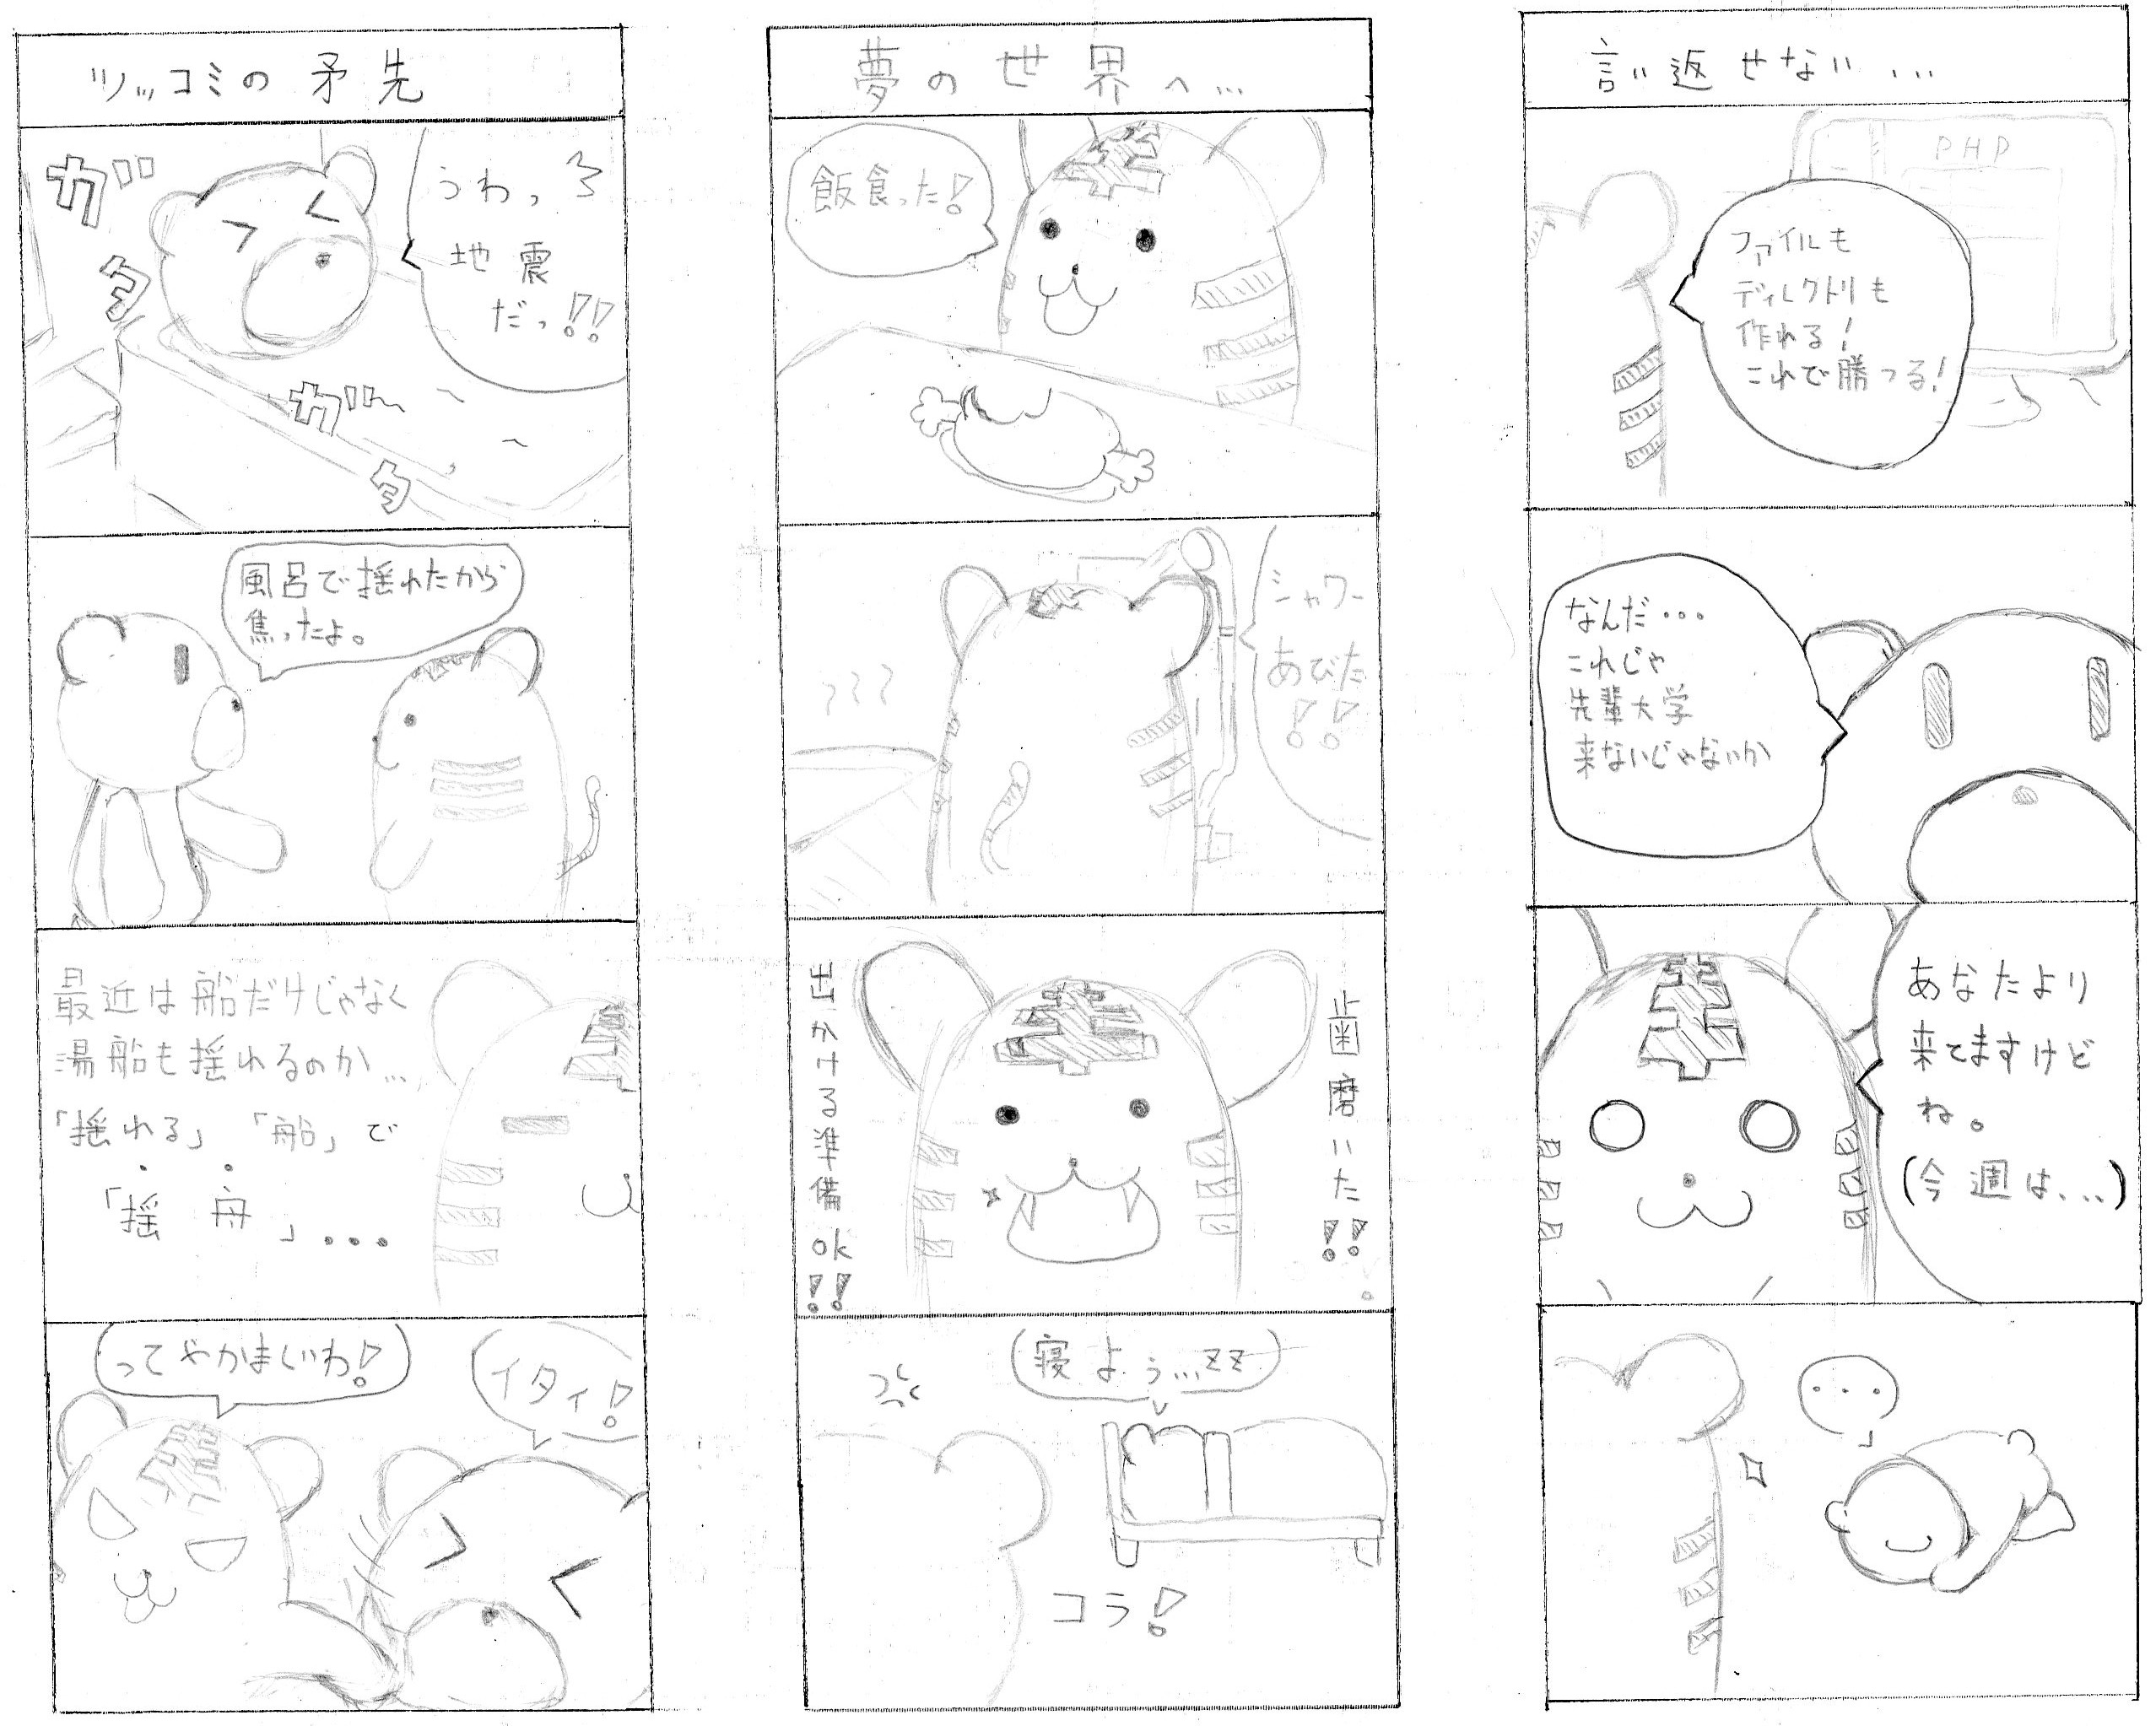 ツッコミの矛先
ガ
タ
ガ
タ
うわっ
地震
だっ!!
風呂で揺れたから
焦ったよ。
最近は船だけじゃなく
湯船も揺れるのか...
「揺れる」「船」で
「揺舟」...
ってやかましいわ!
イタイ!
夢の世界へ...
飯食った!
シャワー
あびた
!!
歯磨いた!!
出かける準備ok!!
寝よぅ...zz
コラ!
言い返せない...
PHP
ファイルも
ディレクトリも
作れる!
これで勝つる!
なんだ...
これじゃ
先輩大学
来ないじゃないか
あなたより
来てますけど
ね。
(今週は...)
...